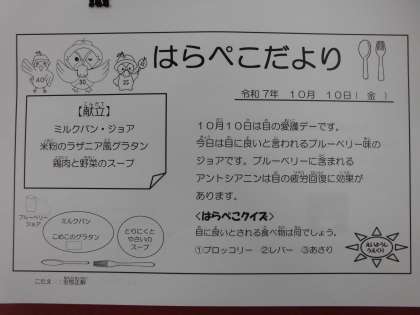 はらぺこだより
令和7年 10月 10日( 金 )
【献立】
ミルクパン・ジョア
米粉のラザニア風グラタン
鶏肉と野菜のスープ
10月10日は目の愛護デーです。
今日は目に良いと言われるブルーベリー味の
ジョアです。ブルーベリーに含まれる
アントシアニンは目の疲労回復に効果が
あります。
<はらぺこクイズ>
目に良いとされる食べ物は何でしょう。
①ブロッコリー ②レバー ③あさり
ブルーベリー
ジョア
ミルクパン
こめこのグラタン
とりにくと
やさいの
スープ
こたえ :全部正解